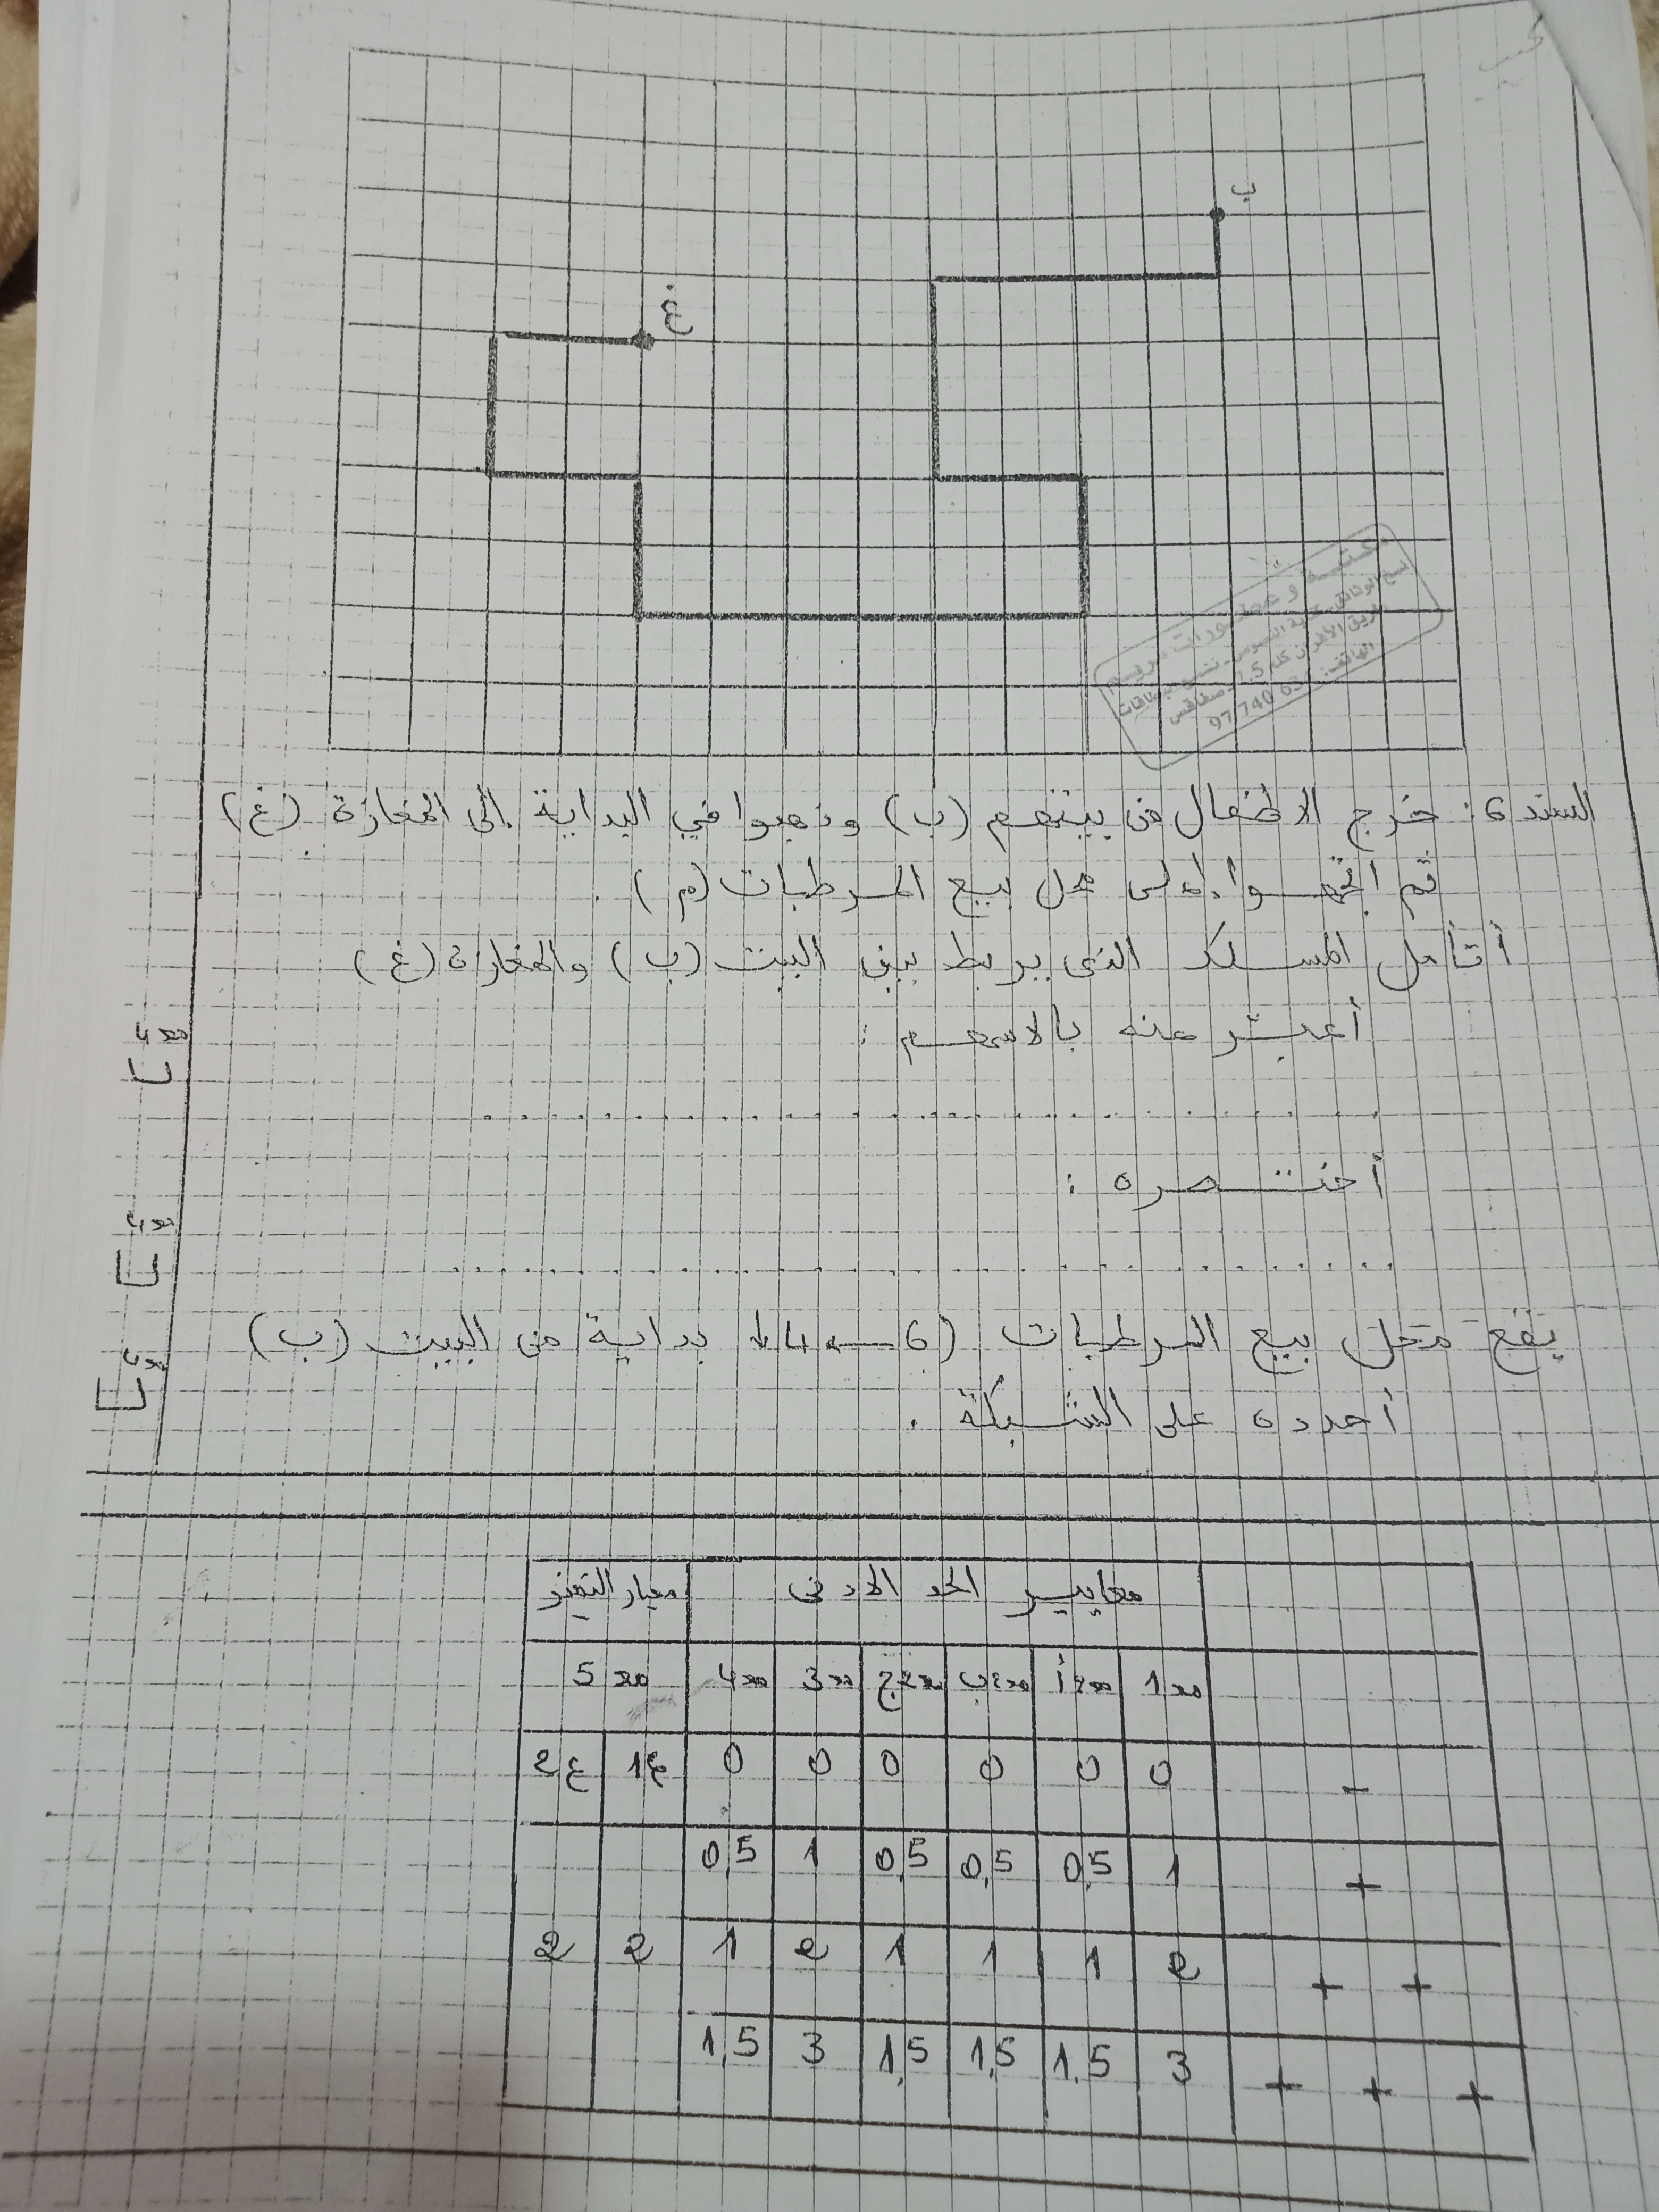 ب
غ
السند 6: خرج الاطفال من بيتهم (ب) وذهبوا في البداية إلى المغازة (غ)
ثم اتجهوا إلى محل بيع المرطبات (م).
أتأمل المسلك الذي يربط بين البيت (ب) والمغازة (غ)
أعبر عنه بالاسهم:
مع4
أختصره:
مع4
يقع محل بيع المرطبات (6← 4↓ بداية من البيت (ب)
مع4
أحدده على الشبكة.
معايير الحد الادنى معيار التميز
مع1 مع2أ مع2ب مع2ج مع3 مع4 مع5
- 0 0 0 0 0 0 ع1 ع2
+ 1 0,5 0,5 0,5 1 0,5
+ + 2 1 1 1 2 1 2 2
+ + + 3 1,5 1,5 1,5 3 1,5